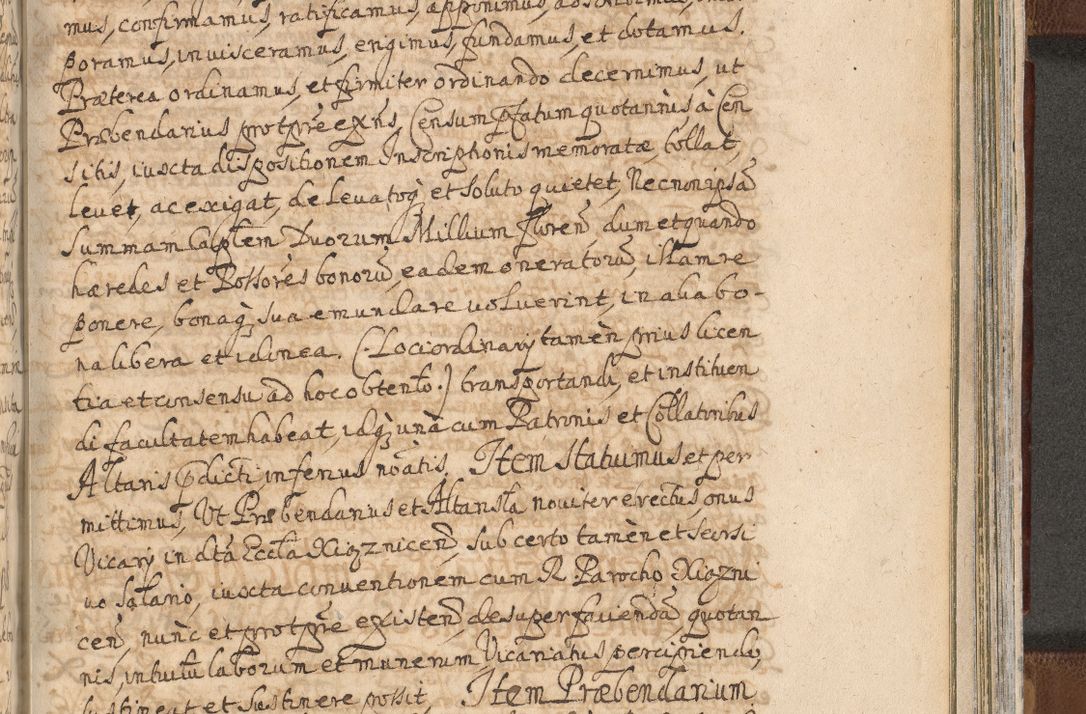 mus, confirmamus, ratificamus, apponimus,
poramus, inuisceramus, erigimus, fundamus, et dotamus.
Præterea ordinamus, et firmiter ordinando decernimus, ut
Præbendarius protprè exñs, Censum pfatum quotannis, à Cen
sitis, iuxta dispositionem Inscriptionis memoratæ, tollat,
leuet, ac exigat, de leuatoq; et soluto quietet, Necnon ipsā
summam Capłem Duorum Millium Floren̄ dum et quando
hæredes et Possorès bonorū, eadem oneratorū, illam re
ponere, bonaq; sua emundare uoluerint, in alia bo-
na libera et idonea. (Loci ordinarij tamèn prius licen
tia et consensu ad hoc obtento.) transportandi, et instituen
di facultatem habeat, idq; unà cum Patronis et Collatoribus
Altaris pdicti inferius noātis. Item statuimus et per
mittimus, Ut Præbendarius et Altarista nouiter erectus, onus
Vicarij in dtā Eccła Xiąznicen̄, sub certo tamèn et seorsi
uo sałario, iuxta conuentionem cum R Parocho Xiązni
cen̄, nunc et protprè existen̄, desuper faciendā quotan
nis, intuitu laborum et munerum Vicariatus percipiendo,
sustineat et sustinere possit. Item Præbendarium